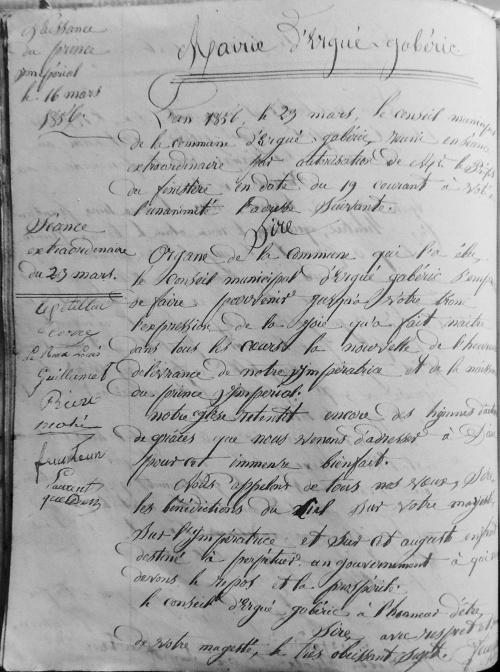 Naissance
du prince
ympérial
le 16 mars
1856.
Mairie d'Ergué-gabéric
L'an 1856, le 23 mars, le conseil municip
de la commune d'Ergué gabéric, réunie en séance
extraordinaire autorisation de Mr le Préfet
du finistère en date du 19 courant à voté
l'unanimité l'adresse Suivante.
Sire
Séance
extraordinaire
du 23 mars.
Organe de la commune qui l'a élu,
le Conseil municipal d'Ergué gabéric s'emp
de faire parvenir jusqu'à votre trone
l'expression de la joie qu'a fait naitre
dans tous les cœurs la nouvelle de l'heureu
délivrance de notre ympératrice et de la naissan
du prince ympérial.
notre église retentit encore des hymnes d'acti
de grâces que nous venons d'adresser à Dieu
pour cet immense bienfait.
Nous appelons de tous nos vœux, Sire,
les bénédictions du Ciel sur votre majesté
Sur l'ympératrice et sur cet auguste enfant
destiné à perpétuer un gouvernement à qui
devons le repos et la prospérité.
le conseil d'Ergué gabéric à l'honneur d'être,
Sire, avec respect
de votre majesté, le très obéissant Sujet.
Le Roux Louis
Guillimet
Laurent